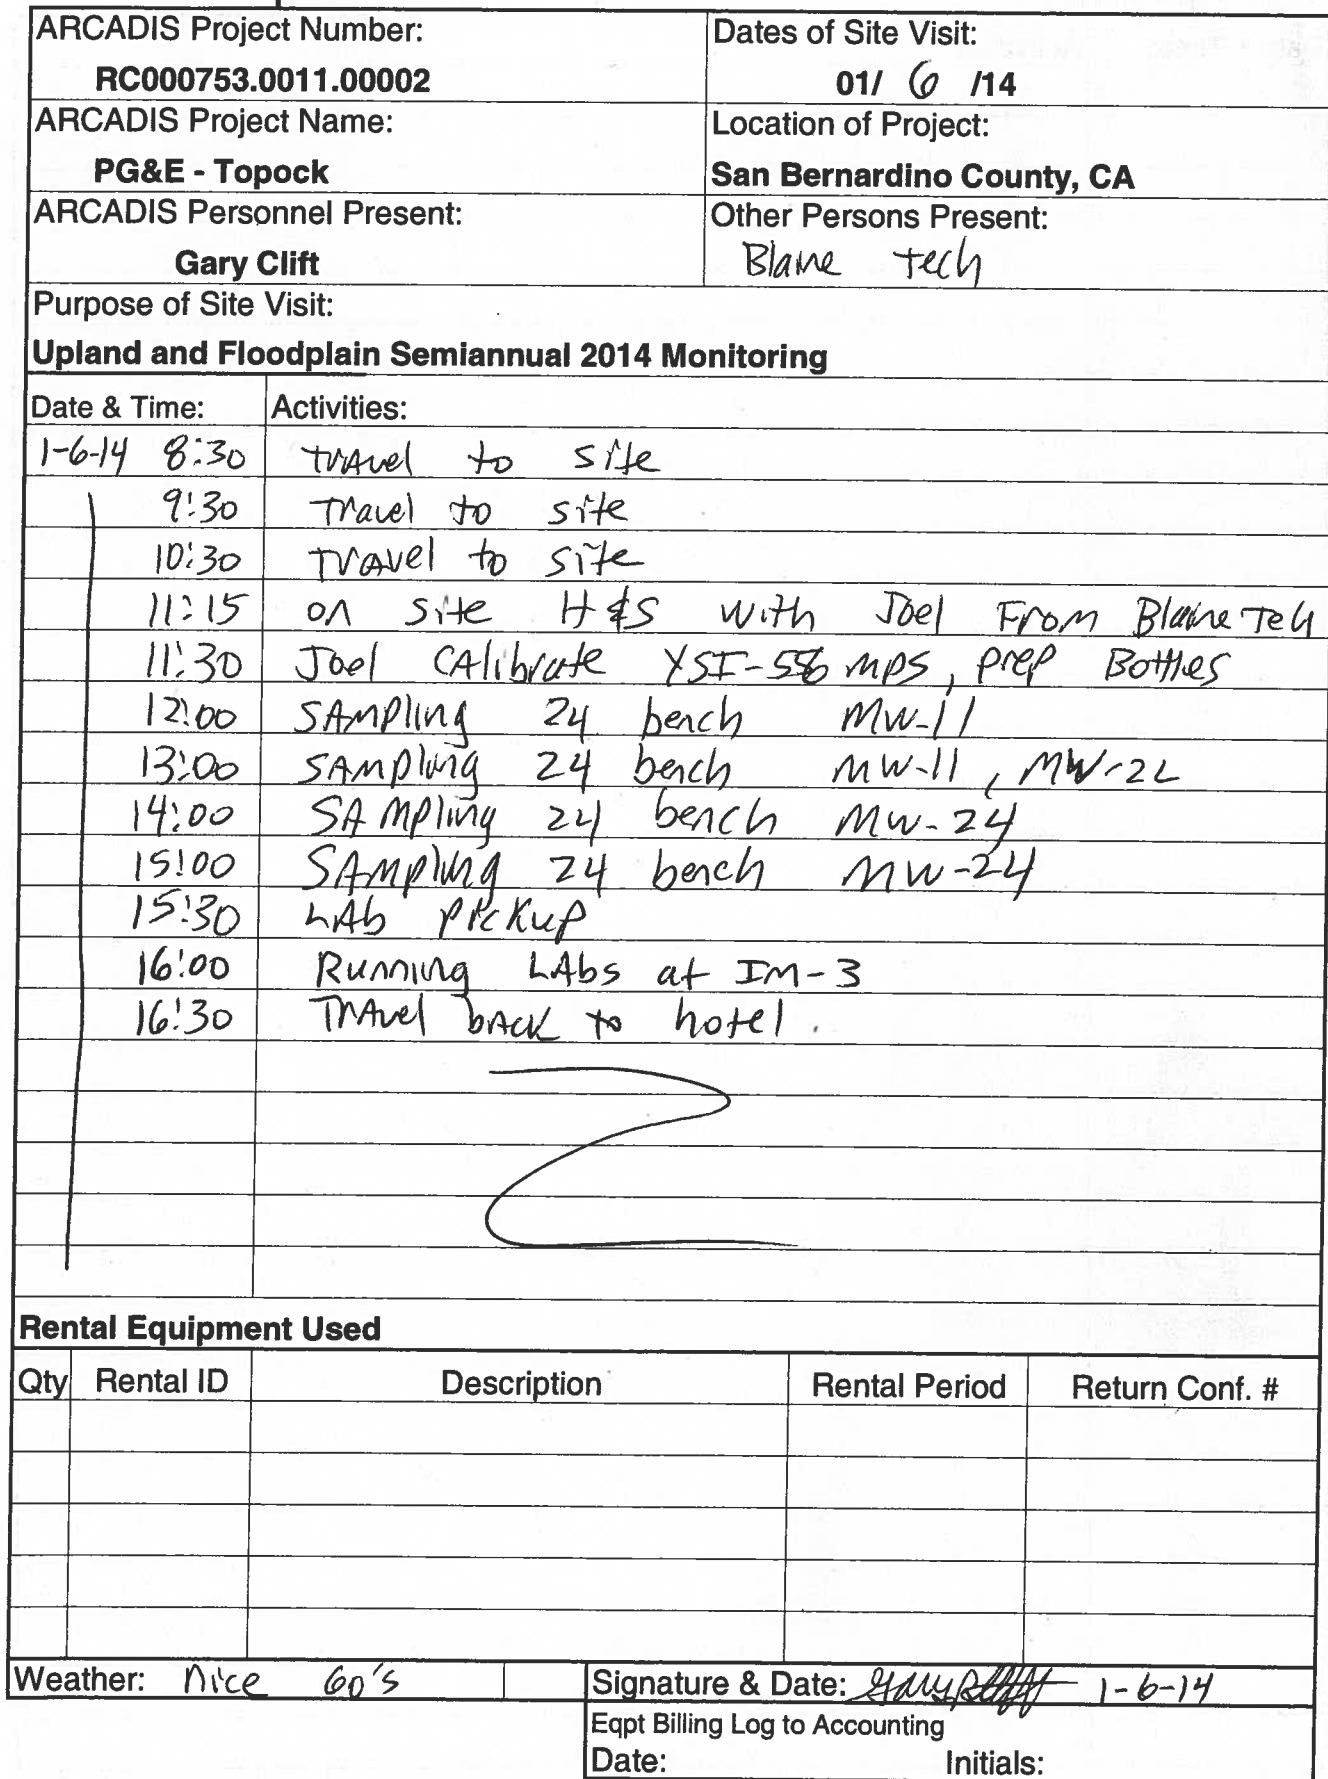 ARCADIS Project Number: Dates of Site Visit:
RC000753.0011.00002 01/ 6 /14
ARCADIS Project Name: Location of Project:
PG&E - Topock San Bernardino County, CA
ARCADIS Personnel Present: Other Persons Present:
Gary Clift Blaine tech
Purpose of Site Visit:
Upland and Floodplain Semiannual 2014 Monitoring
Date & Time: Activities:
1-6-14 8:30 travel to site
9:30 Travel to site
10:30 Travel to site
11:15 on site H&S with Joel From Blaine Tech
11:30 Joel CAlibrate YSI-556 mps, prep Bottles
12:00 SAmpling 24 bench MW-11
13:00 SAmpling 24 bench MW-11, MW-22
14:00 SAmpling 24 bench MW-24
15:00 SAmpling 24 bench MW-24
15:30 LAb pickup
16:00 Running LAbs at IM-3
16:30 TrAvel bAck to hotel.
Rental Equipment Used
Qty Rental ID Description Rental Period Return Conf. #
Weather: nice 60's Signature & Date: 1-6-14
Eqpt Billing Log to Accounting
Date: Initials: